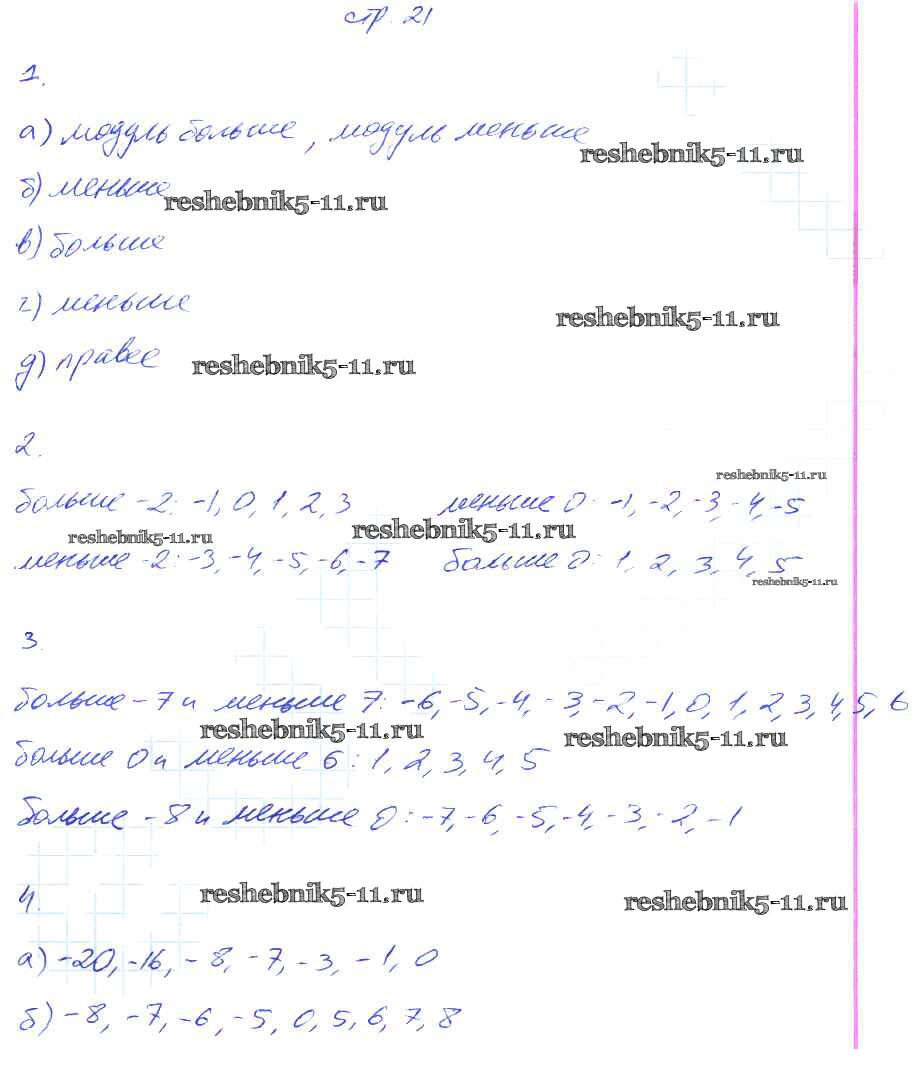 стр. 21
1.
а) модуль больше, модуль меньше
reshebnik5-11.ru
б) меньше
reshebnik5-11.ru
в) больше
г) меньше
reshebnik5-11.ru
д) правее
reshebnik5-11.ru
2.
reshebnik5-11.ru
больше -2: -1, 0, 1, 2, 3 меньше 0: -1, -2, -3, -4, -5
reshebnik5-11.ru reshebnik5-11.ru
меньше -2: -3, -4, -5, -6, -7 больше 0: 1, 2, 3, 4, 5
reshebnik5-11.ru
3.
больше -7 и меньше 7: -6, -5, -4, -3, -2, -1, 0, 1, 2, 3, 4, 5, 6
reshebnik5-11.ru reshebnik5-11.ru
больше 0 и меньше 6: 1, 2, 3, 4, 5
больше -8 и меньше 0: -7, -6, -5, -4, -3, -2, -1
4.
reshebnik5-11.ru reshebnik5-11.ru
а) -20, -16, -8, -7, -3, -1, 0
б) -8, -7, -6, -5, 0, 5, 6, 7, 8